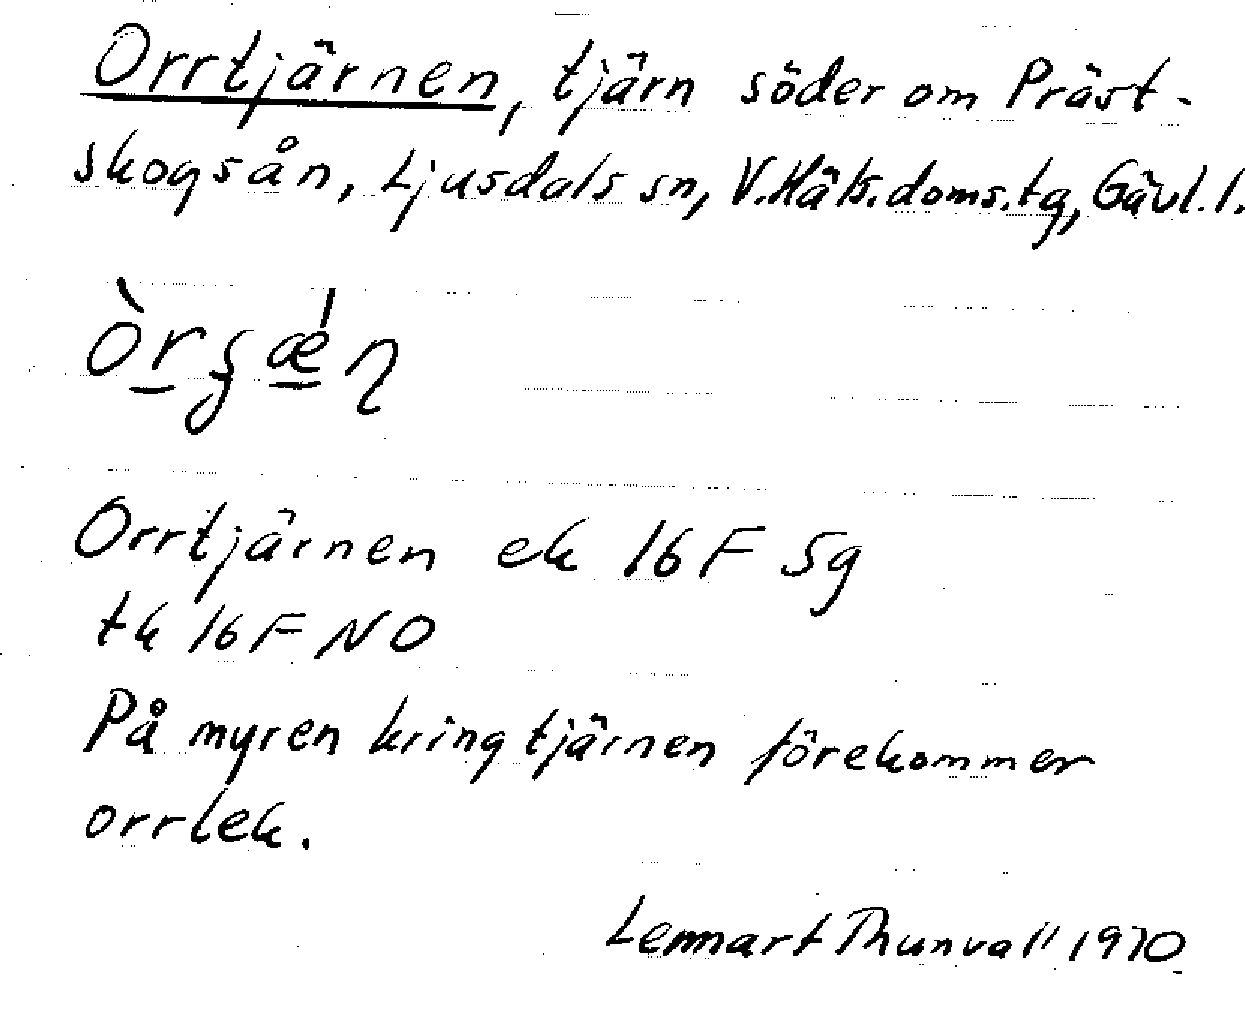 Orrtjärnen, tjärn söder om Präst-
skogsån, Ljusdals sn, V.Häls.doms.tg, Gävl.l.
Orrtjärnen ek 16F 5g
tk 16F NO
På myren kring tjärnen förekommer
orrlek.
Lennart Thunvall 1970